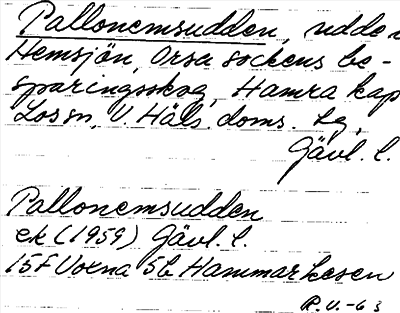 Pallonemsudden, udde i
Hemsjön, Orsa sockens be-
sparingsskog, Hamra kap
Lossn, V. Häls. doms. tg,
Gävl. l.
Pallonemsudden
ek (1959) Gävl. l.
15F Voxna 5b Hammarkesen
R.V.-63